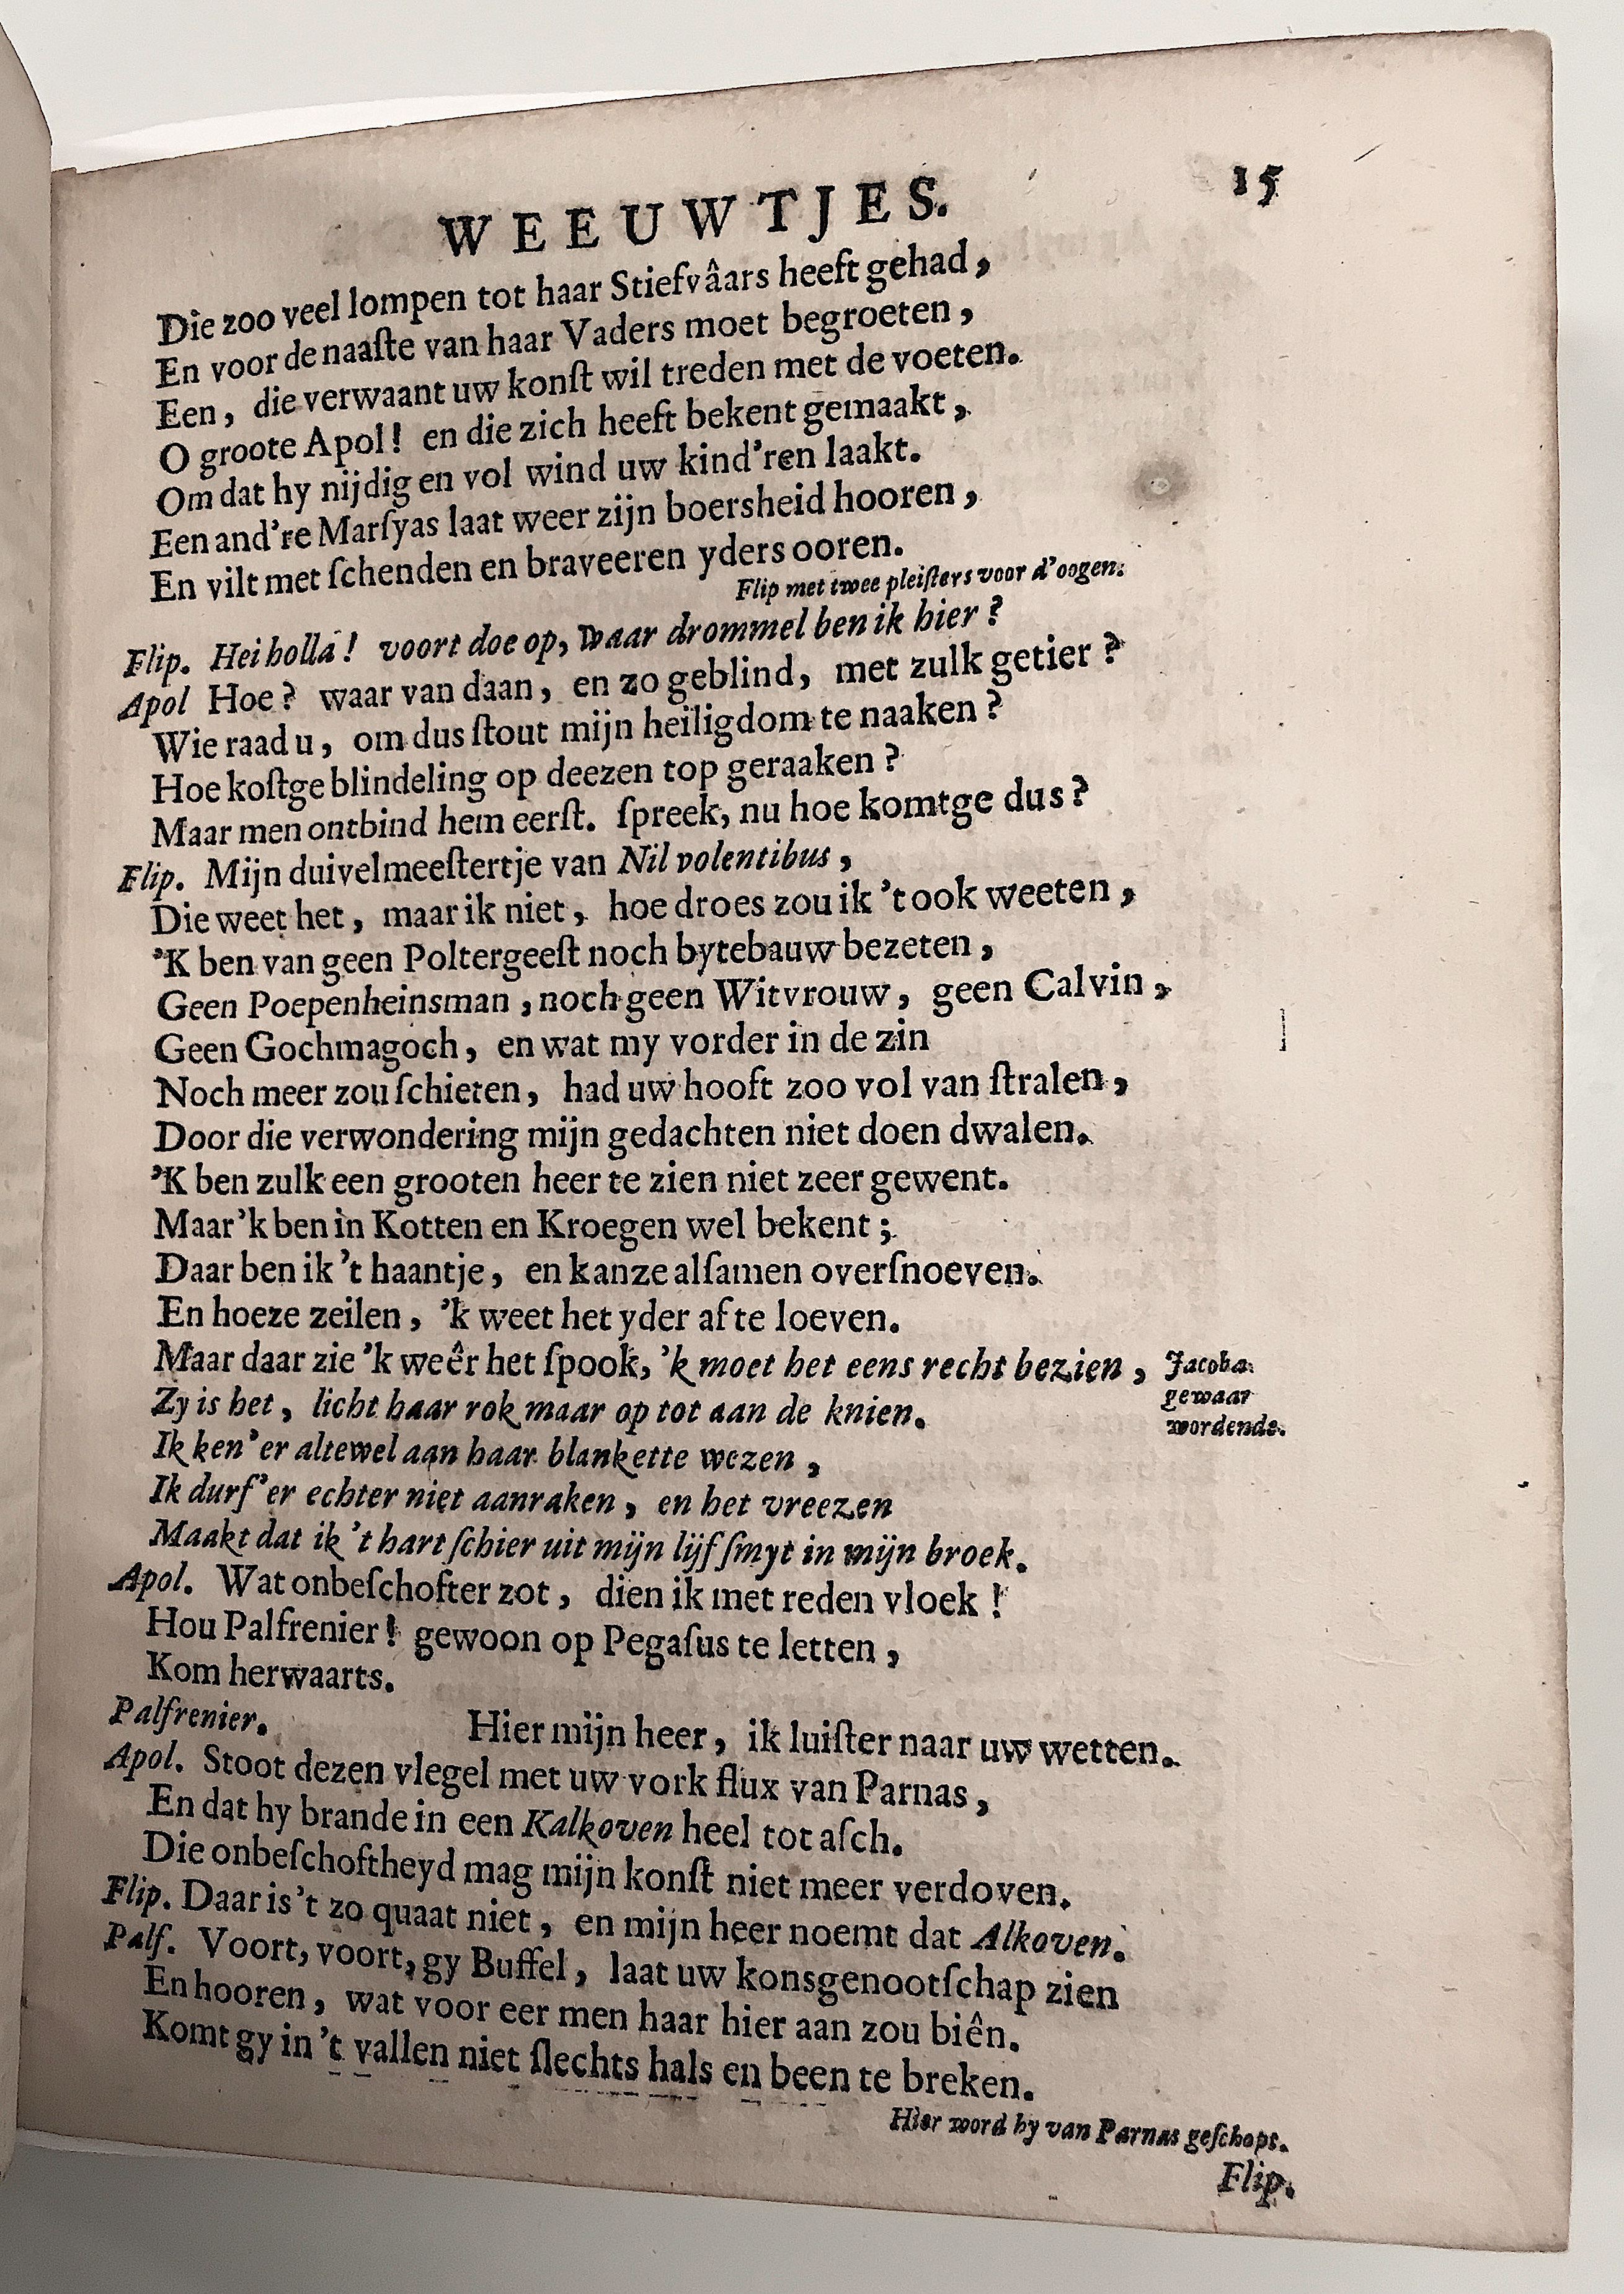 WEEUWTJES. 15
Die zoo veel lompen tot haar Stiefvâars heeft gehad,
En voor de naaſte van haar Vaders moet begroeten,
Een, die verwaant uw konſt wil treden met de voeten.
O groote Apol! en die zich heeft bekent gemaakt,
Om dat hy nijdig en vol wind uw kind'ren laakt.
Een and're Marſyas laat weer zijn boersheid hooren,
En vilt met ſchenden en braveeren yders ooren.
Flip met twee pleiſters voor d'oogen.
Flip. Hei holla! voort doe op, waar drommel ben ik hier?
Apol Hoe? waar van daan, en zo geblind, met zulk getier?
Wie raad u, om dus ſtout mijn heiligdom te naaken?
Hoe koſtge blindeling op deezen top geraaken?
Maar men ontbind hem eerſt. ſpreek, nu hoe komtge dus?
Flip. Mijn duivelmeeſtertje van Nil volentibus,
Die weet het, maar ik niet, hoe droes zou ik 't ook weeten,
'K ben van geen Poltergeeſt noch bytebauw bezeten,
Geen Poepenheinsman, noch geen Witvrouw, geen Calvin,
Geen Gochmagoch, en wat my vorder in de zin
Noch meer zou ſchieten, had uw hooft zoo vol van ſtralen,
Door die verwondering mijn gedachten niet doen dwalen.
'K ben zulk een grooten heer te zien niet zeer gewent.
Maar 'k ben in Kotten en Kroegen wel bekent;
Daar ben ik 't haantje, en kanze alſamen overſnoeven.
En hoeze zeilen, 'k weet het yder af te loeven.
Maar daar zie 'k weêr het ſpook, 'k moet het eens recht bezien, Jacoba
gewaar
wordende.
Zy is het, licht haar rok maar op tot aan de knien.
Ik ken 'er altewel aan haar blankette wezen,
Ik durf 'er echter niet aanraken, en het vreezen
Maakt dat ik 't hart ſchier uit mijn lijf ſmyt in mijn broek.
Apol. Wat onbeſchofter zot, dien ik met reden vloek!
Hou Palfrenier! gewoon op Pegaſus te letten,
Kom herwaarts.
Palfrenier. Hier mijn heer, ik luiſter naar uw wetten.
Apol. Stoot dezen vlegel met uw vork flux van Parnas,
En dat hy brande in een Kalkoven heel tot aſch.
Die onbeſchoftheyd mag mijn konſt niet meer verdoven.
Flip. Daar is 't zo quaat niet, en mijn heer noemt dat Alkoven.
Palf. Voort, voort, gy Buffel, laat uw konsgenootſchap zien
En hooren, wat voor eer men haar hier aan zou biên.
Komt gy in 't vallen niet ſlechts hals en been te breken.
Hier word hy van Parnas geſchopt.
Flip.